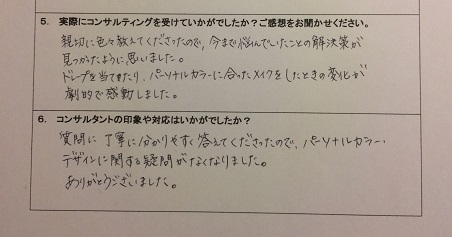 5. 実際にコンサルティングを受けていかがでしたか？ご感想をお聞かせください。
親切に色々教えてくださったので、今まで悩んでいたことの解決策が
見つかったように思いました。
ドレープを当てたり、パーソナルカラーに合ったメイクをしたときの変化が
劇的で感動しました。
6. コンサルタントの印象や対応はいかがでしたか？
質問に丁寧に分かりやすく答えてくださったので、パーソナルカラー・
デザインに関する疑問がなくなりました。
ありがとうございました。